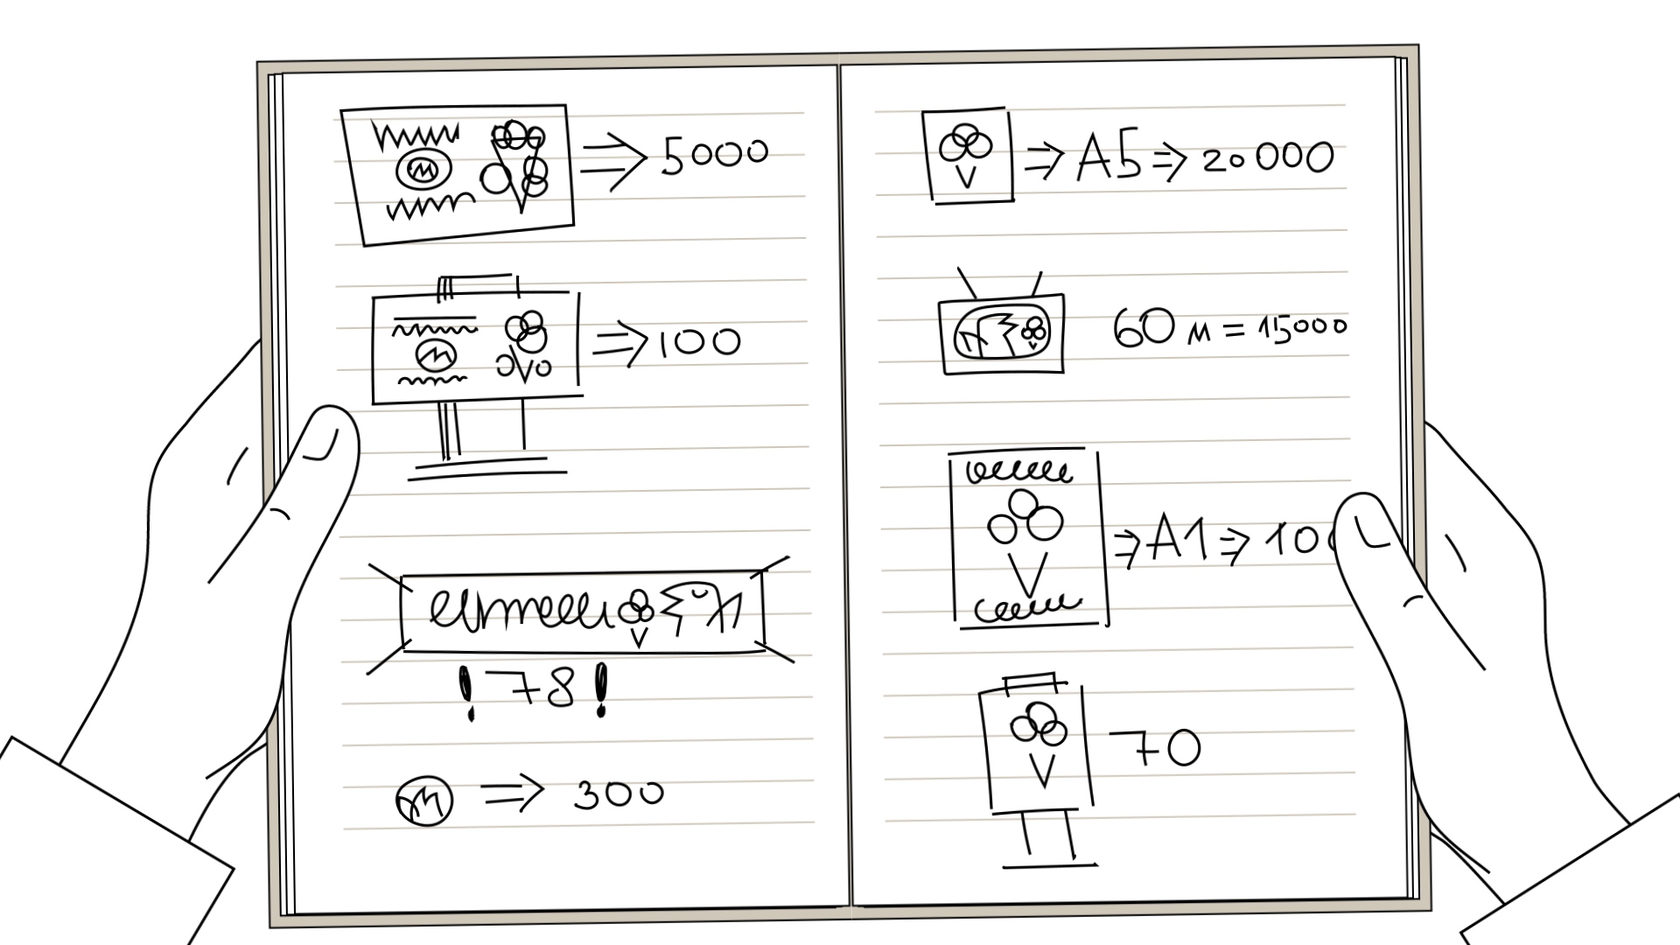 ⇒ 5000
⇒ 100
! 78 !
⇒ 300
⇒ A5 ⇒ 20000
60 м = 15000
⇒ A1 ⇒ 10
70